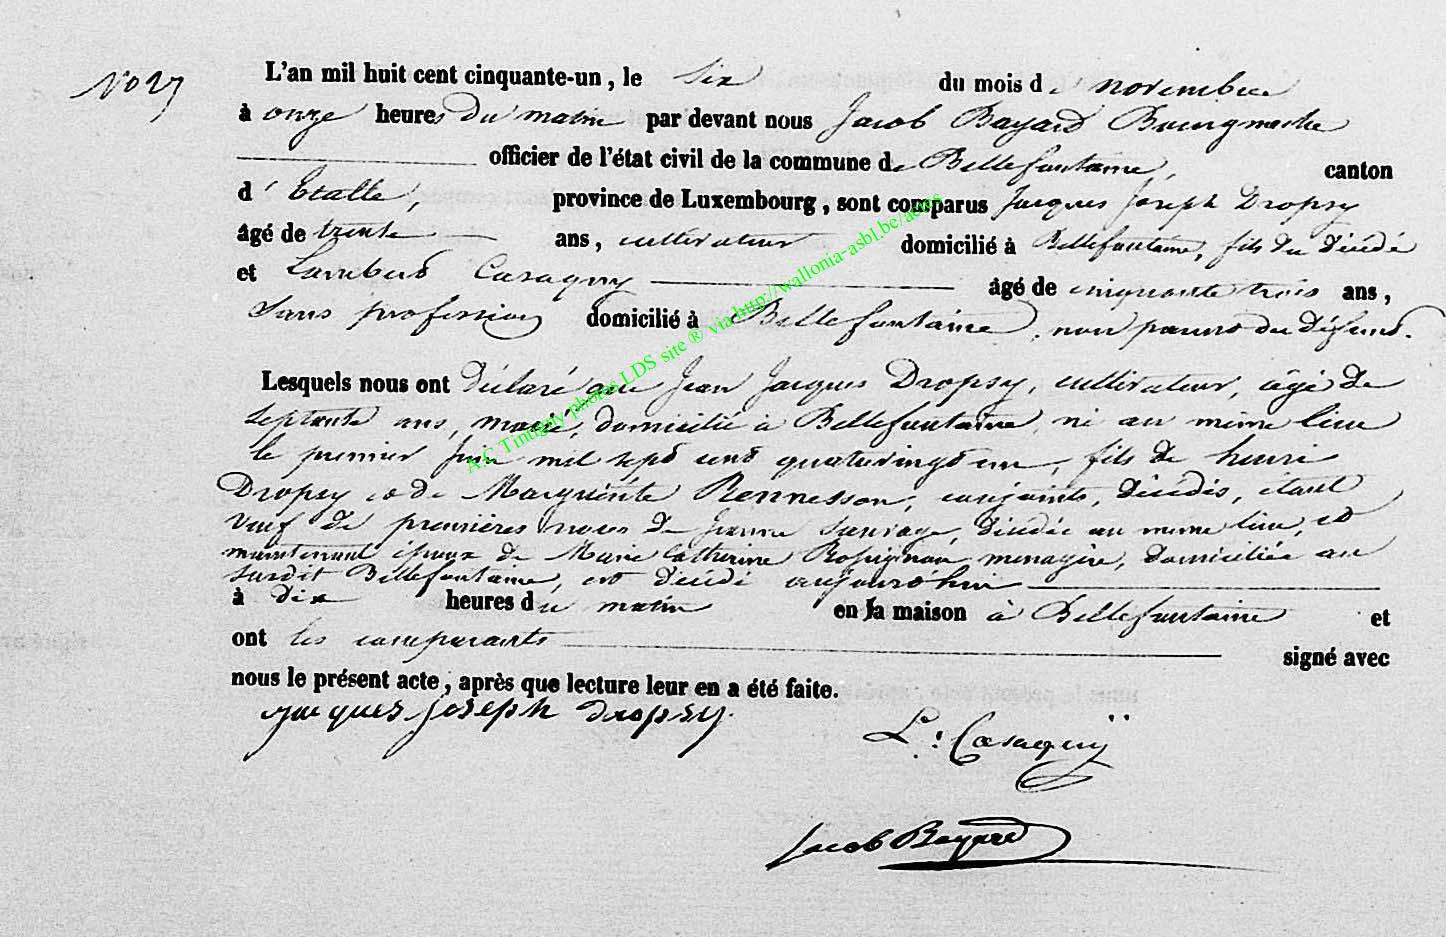 No 27
L'an mil huit cent cinquante-un, le six du mois de novembre
à onze heures du matin par devant nous Jacob Bayard Bourgmestre
officier de l'état civil de la commune de Bellefontaine, canton
d'Etalle, province de Luxembourg, sont comparus Jacques Joseph Dropsy
âgé de trente ans, cultivateur domicilié à Bellefontaine, fils du décédé
et Lambert Casaquy âgé de cinquante trois ans,
sans profession domicilié à Bellefontaine, non parent du défunt.
Lesquels nous ont déclaré que Jean Jacques Dropsy, cultivateur, âgé de
septante ans, marié, domicilié à Bellefontaine, né au même lieu
le premier Juin mil sept cent quatrevingt un, fils de henri
Dropsy et de Marguerite Rennesson, conjoints, décédés, étant
veuf de premières noces de Jeanne Sauvage, décédée au même lieu, et
maintenant époux de Marie Catherine Rossignon menagère, domiciliée au
susdit Bellefontaine, est décédé aujourd'hui
à dix heures du matin en la maison à Bellefontaine et
ont les comparants signé avec
nous le présent acte, après que lecture leur en a été faite.
jacques joseph dropsy.
L. Casaquÿ
Jacob Bayard
A.C Tintigny photos LDS site ® via http://wallonia-asbl.be/actes